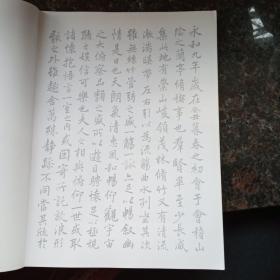 永和九年歲在癸丑暮春之初會于會稽山
陰之蘭亭脩稧事也群賢畢至少長咸
集此地有崇山峻領茂林脩竹又有清流
激湍暎帶左右引以為流觴曲水列坐其次
雖無絲竹管弦之盛一觴一詠亦足以暢叙幽
情是日也天朗氣清惠風和暢仰觀宇宙
之大俯察品類之盛所以遊目騁懷足以極視
聽之娛信可樂也夫人之相與俯仰一世或取
諸懷抱悟言一室之內或因寄所託放浪形
骸之外雖趣舍萬殊靜躁不同當其欣於